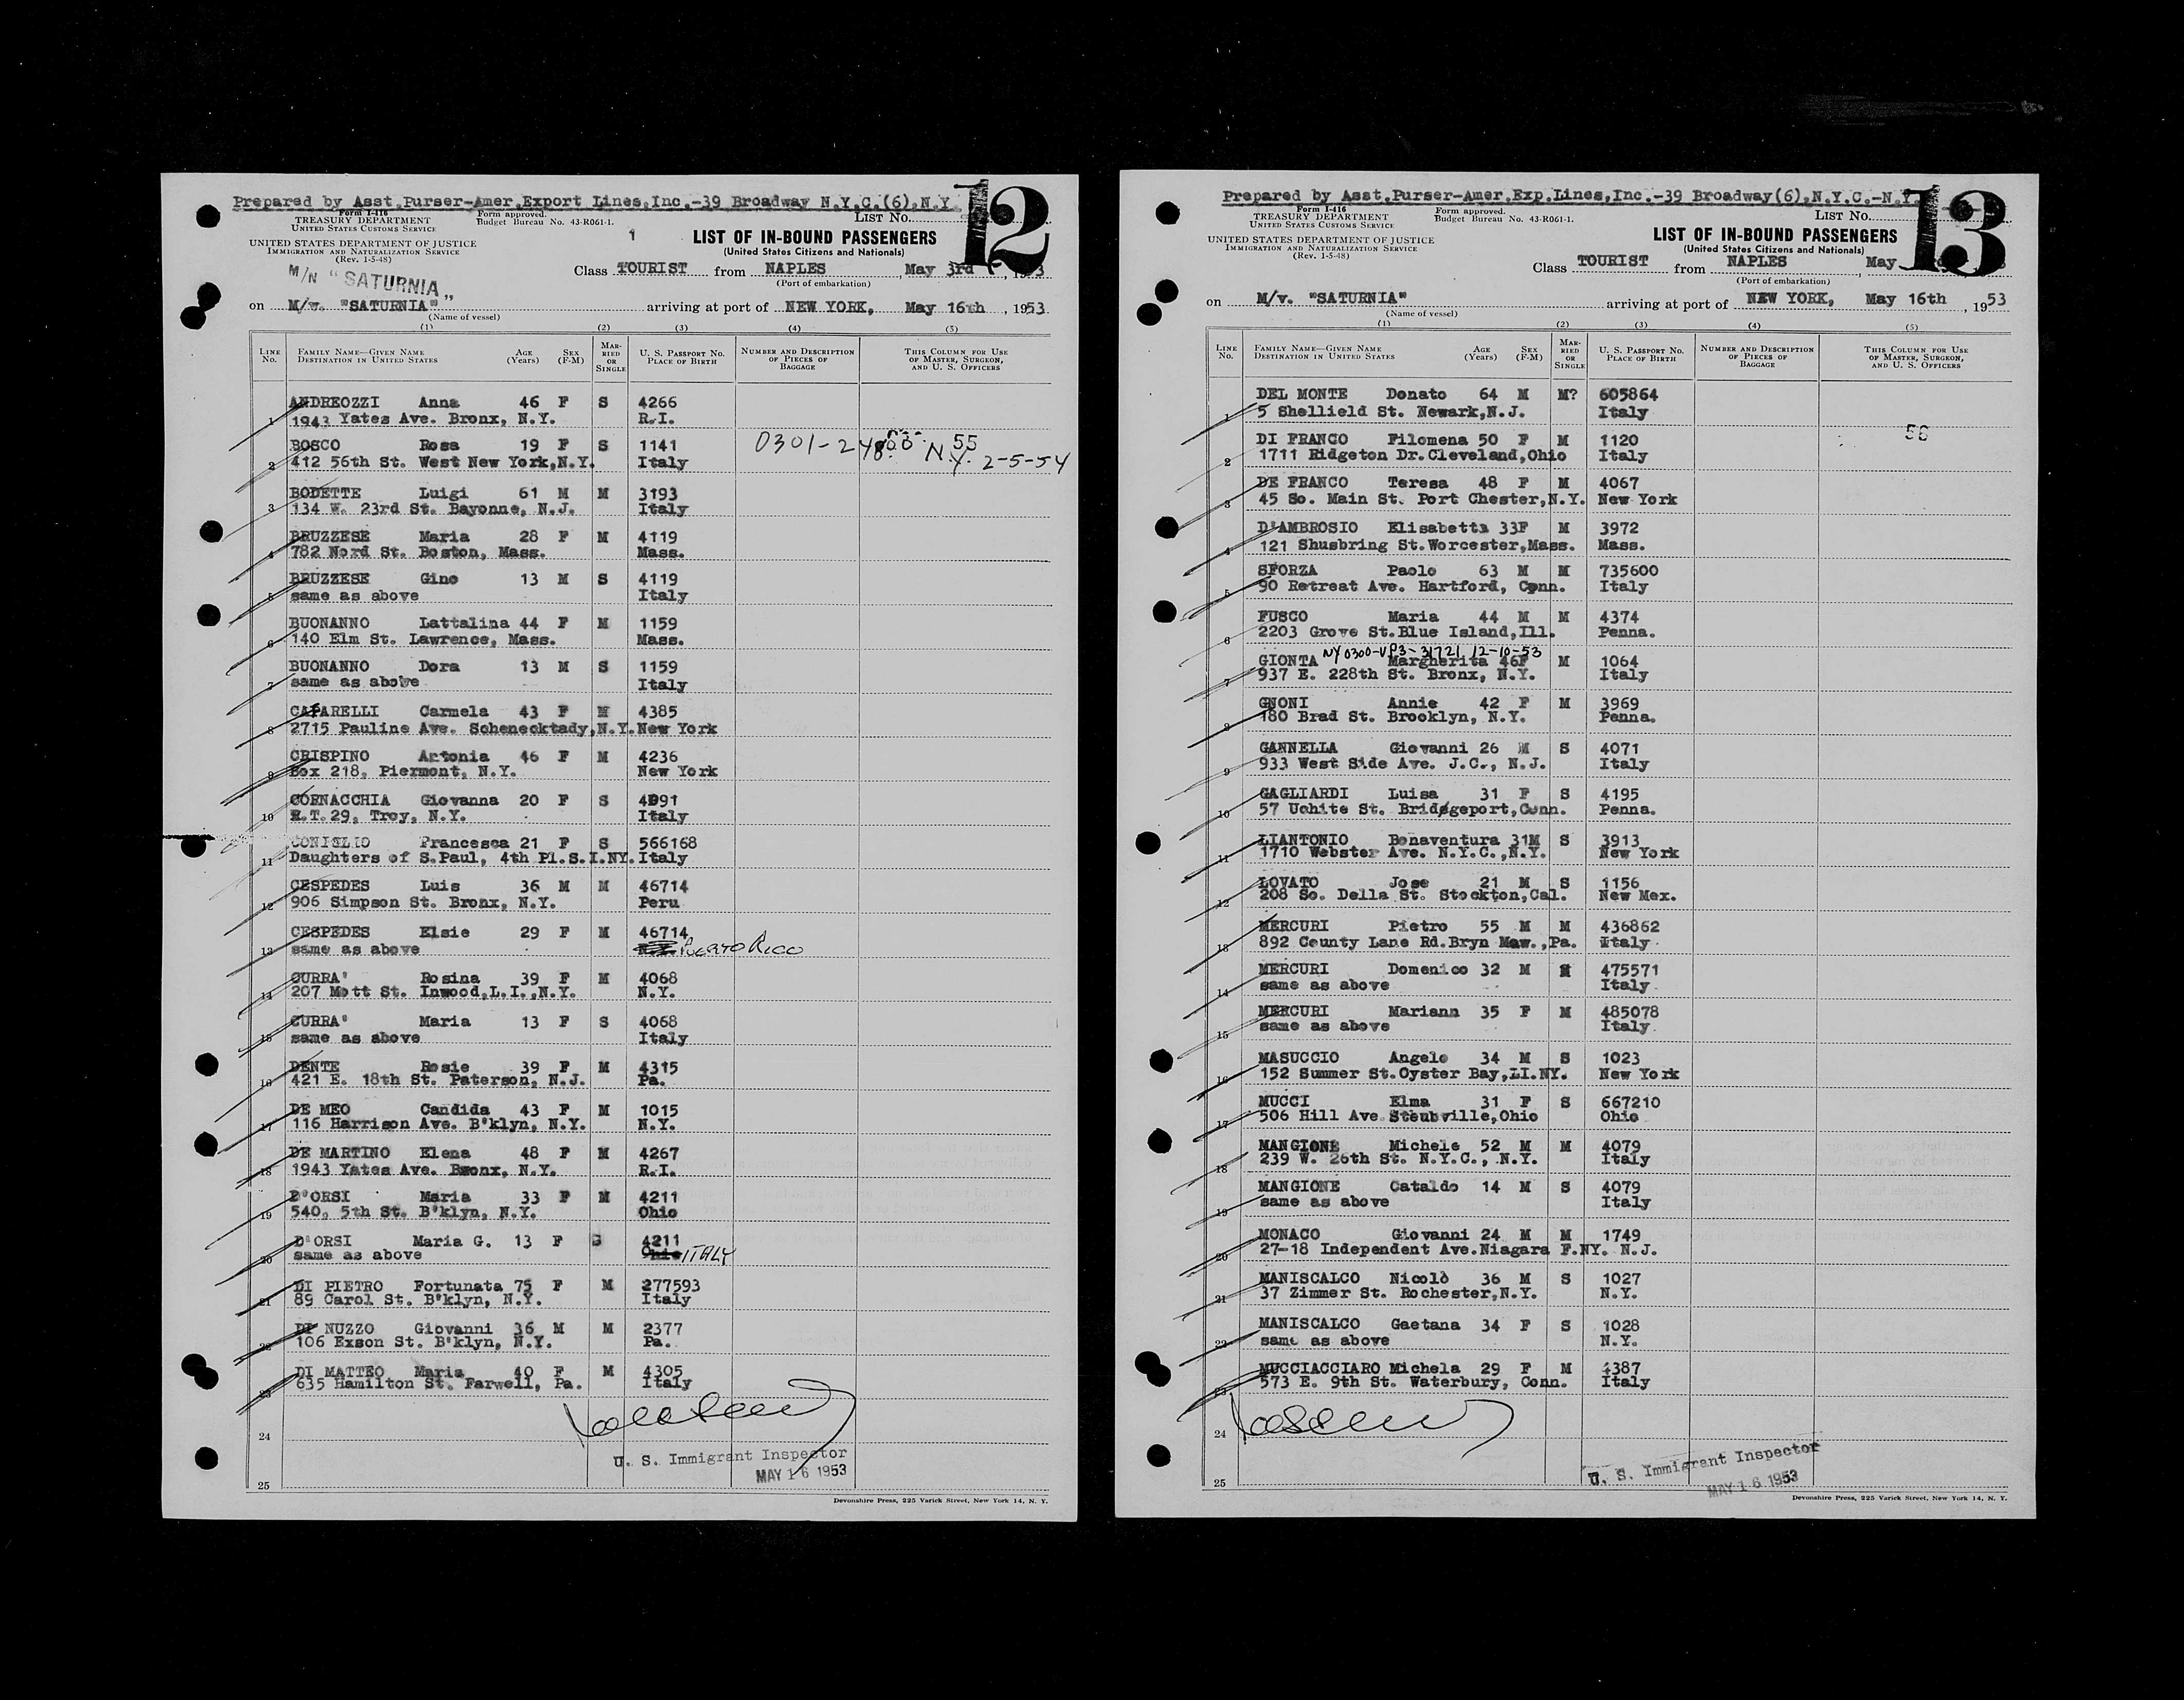 Prepared by Asst.Purser-Amer.Export Lines,Inc.-39 Broadway N.Y.C.(6),N.Y.
12
Form I-416
TREASURY DEPARTMENT
UNITED STATES CUSTOMS SERVICE
Form approved.
Budget Bureau No. 43-R061-1.
LIST No.
UNITED STATES DEPARTMENT OF JUSTICE
IMMIGRATION AND NATURALIZATION SERVICE
(Rev. 1-5-48)
1
LIST OF IN-BOUND PASSENGERS
(United States Citizens and Nationals)
M/N "SATURNIA"
Class TOURIST from NAPLES, May 3rd
(Port of embarkation)
on M/v. "SATURNIA" arriving at port of NEW YORK, May 16th, 1953
(Name of vessel)
(1) (2) (3) (4) (5)
LINE No. FAMILY NAME—GIVEN NAME DESTINATION IN UNITED STATES AGE (Years) SEX (F-M) MARRIED OR SINGLE U. S. PASSPORT No. PLACE OF BIRTH NUMBER AND DESCRIPTION OF PIECES OF BAGGAGE THIS COLUMN FOR USE OF MASTER, SURGEON, AND U. S. OFFICERS
ANDREOZZI Anna 46 F S 4266
1 1943 Yates Ave. Bronx, N.Y. R.I.
BOSCO Rosa 19 F S 1141 0301-2 N.Y. 2-5-54
55
2 412 56th St. West New York,N.Y. Italy
BODETTE Luigi 61 M M 3193
3 134 W. 23rd St. Bayonne, N.J. Italy
BRUZZESE Maria 28 F M 4119
4 782 Nord St. Boston, Mass. Mass.
BRUZZESE Gino 13 M S 4119
5 same as above Italy
BUONANNO Lattalina 44 F M 1159
6 140 Elm St. Lawrence, Mass. Mass.
BUONANNO Dora 13 M S 1159
7 same as above Italy
CAFARELLI Carmela 43 F M 4385
8 2715 Pauline Ave. Schenecktady,N.Y. New York
CRISPINO Antonia 46 F M 4236
9 Box 218, Piermont, N.Y. New York
CORNACCHIA Giovanna 20 F S 4091
10 R.T.29, Troy, N.Y. Italy
CONIGLIO Francesca 21 F S 566168
11 Daughters of S.Paul, 4th Pl.S.I.NY. Italy
CESPEDES Luis 36 M M 46714
12 906 Simpson St. Bronx, N.Y. Peru
CESPEDES Elsie 29 F M 46714
13 same as above PUERTO RICO
CURRA' Rosina 39 F M 4068
14 207 Mott St. Inwood,L.I.,N.Y. N.Y.
CURRA' Maria 13 F S 4068
15 same as above Italy
DENTE Rosie 39 F M 4315
16 421 E. 18th St. Paterson, N.J. Pa.
DE MEO Candida 43 F M 1015
17 116 Harrison Ave. B'klyn, N.Y. N.Y.
DE MARTINO Elena 48 F M 4267
18 1943 Yates Ave. Bronx, N.Y. R.I.
D'ORSI Maria 33 F M 4211
19 540, 5th St. B'klyn, N.Y. Ohio
D'ORSI Maria G. 13 F S 4211
20 same as above Ohio ITALY
DI PIETRO Fortunata 75 F M 277593
21 89 Carol St. B'klyn, N.Y. Italy
DI NUZZO Giovanni 36 M M 2377
22 106 Exson St. B'klyn, N.Y. Pa.
DI MATTEO Maria 40 F M 4305
23 635 Hamilton St. Farwell, Pa. Italy
24
U. S. Immigrant Inspector
MAY 16 1953
25
Devonshire Press, 225 Varick Street, New York 14, N. Y.
Prepared by Asst.Purser-Amer.Exp.Lines,Inc.-39 Broadway(6),N.Y.C.-N.Y.
13
Form I-416
TREASURY DEPARTMENT
UNITED STATES CUSTOMS SERVICE
Form approved.
Budget Bureau No. 43-R061-1.
LIST No.
UNITED STATES DEPARTMENT OF JUSTICE
IMMIGRATION AND NATURALIZATION SERVICE
(Rev. 1-5-48)
LIST OF IN-BOUND PASSENGERS
(United States Citizens and Nationals)
Class TOURIST from NAPLES, May
(Port of embarkation)
on M/v. "SATURNIA" arriving at port of NEW YORK, May 16th, 1953
(Name of vessel)
(1) (2) (3) (4) (5)
LINE No. FAMILY NAME—GIVEN NAME DESTINATION IN UNITED STATES AGE (Years) SEX (F-M) MARRIED OR SINGLE U. S. PASSPORT No. PLACE OF BIRTH NUMBER AND DESCRIPTION OF PIECES OF BAGGAGE THIS COLUMN FOR USE OF MASTER, SURGEON, AND U. S. OFFICERS
DEL MONTE Donato 64 M M? 605864
1 5 Shellield St. Newark,N.J. Italy
56
DI FRANCO Filomena 50 F M 1120
2 1711 Ridgeton Dr.Cleveland,Ohio Italy
DE FRANCO Teresa 48 F M 4067
3 45 So. Main St. Port Chester,N.Y. New York
D'AMBROSIO Elisabetta 33F M 3972
4 121 Shusbring St.Worcester,Mass. Mass.
SFORZA Paolo 63 M M 735600
5 90 Retreat Ave. Hartford, Conn. Italy
FUSCO Maria 44 M M 4374
6 2203 Grove St.Blue Island,Ill. Penna.
NY 0300-VP3-31721 12-10-53
GIONTA Margherita 46F M 1064
7 937 E. 228th St. Bronx, N.Y. Italy
GNONI Annie 42 F M 3969
8 180 Brad St. Brooklyn, N.Y. Penna.
GANNELLA Giovanni 26 M S 4071
9 933 West Side Ave. J.C., N.J. Italy
GAGLIARDI Luisa 31 F S 4195
10 57 Uchite St. Bridggeport,Conn. Penna.
LIANTONIO Bonaventura 31M S 3913
11 1710 Webster Ave. N.Y.C.,N.Y. New York
LOVATO Jose 21 M S 1156
12 208 So. Della St. Stockton,Cal. New Mex.
MERCURI Pietro 55 M M 436862
13 892 County Lane Rd.Bryn Maw.,Pa. Italy
MERCURI Domenico 32 M M 475571
14 same as above Italy
MERCURI Mariann 35 F M 485078
15 same as above Italy
MASUCCIO Angelo 34 M S 1023
16 152 Summer St.Oyster Bay,LI.NY. New York
MUCCI Elma 31 F S 667210
17 506 Hill Ave Steubville,Ohio Ohio
MANGIONE Michele 52 M M 4079
18 239 W. 26th St. N.Y.C., N.Y. Italy
MANGIONE Cataldo 14 M S 4079
19 same as above Italy
MONACO Giovanni 24 M M 1749
20 27-18 Independent Ave.Niagara F.NY. N.J.
MANISCALCO Nicolò 36 M S 1027
21 37 Zimmer St. Rochester,N.Y. N.Y.
MANISCALCO Gaetana 34 F S 1028
22 same as above N.Y.
MUCCIACCIARO Michela 29 F M 4387
23 573 E. 9th St. Waterbury, Conn. Italy
24
U. S. Immigrant Inspector
MAY 16 1953
25
Devonshire Press, 225 Varick Street, New York 14, N. Y.